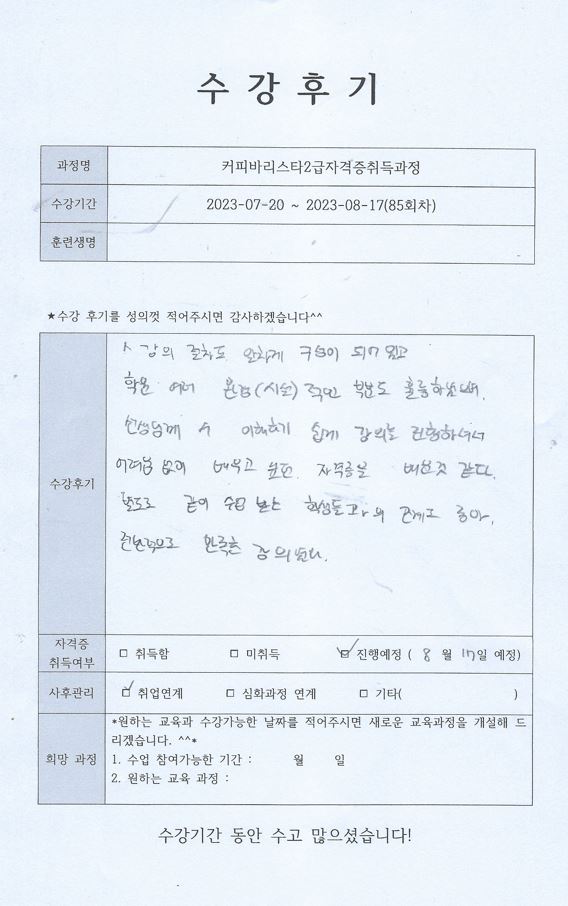 수강후기
과정명 커피바리스타2급자격증취득과정
수강기간 2023-07-20 ~ 2023-08-17(85회차)
훈련생명
★수강 후기를 성의껏 적어주시면 감사하겠습니다^^
수강후기
강의 절차도 알차게 구성이 되어 있고
학원 여러 환경(시설)적인 부분도 훌륭하였으며,
선생님께서 이해하기 쉽게 강의를 진행하셔서
어려움 없이 배우고 실력, 자격증을 배운것 같다.
별도로 같이 수업 받는 학생들과의 관계도 좋아,
전반적으로 만족한 강의였다.
자격증 취득여부 □ 취득함 □ 미취득 ☑ 진행예정 ( 8 월 17일 예정)
사후관리 ☑ 취업연계 □ 심화과정 연계 □ 기타( )
*원하는 교육과 수강가능한 날짜를 적어주시면 새로운 교육과정을 개설해 드
리겠습니다. ^^*
희망 과정 1. 수업 참여가능한 기간 : 월 일
2. 원하는 교육 과정 :
수강기간 동안 수고 많으셨습니다!